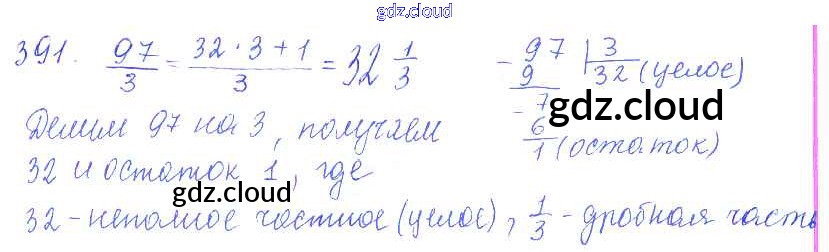 gdz.cloud
391. 97/3 = 32·3+1/3 = 32 1/3
97 | 3
- 9 32 (целое)
- 7
6 gdz.cloud
1 (остаток)
Делим 97 на 3, получаем
32 и остаток 1, где
gdz.cloud
32 - неполное частное (целое), 1/3 - дробная часть